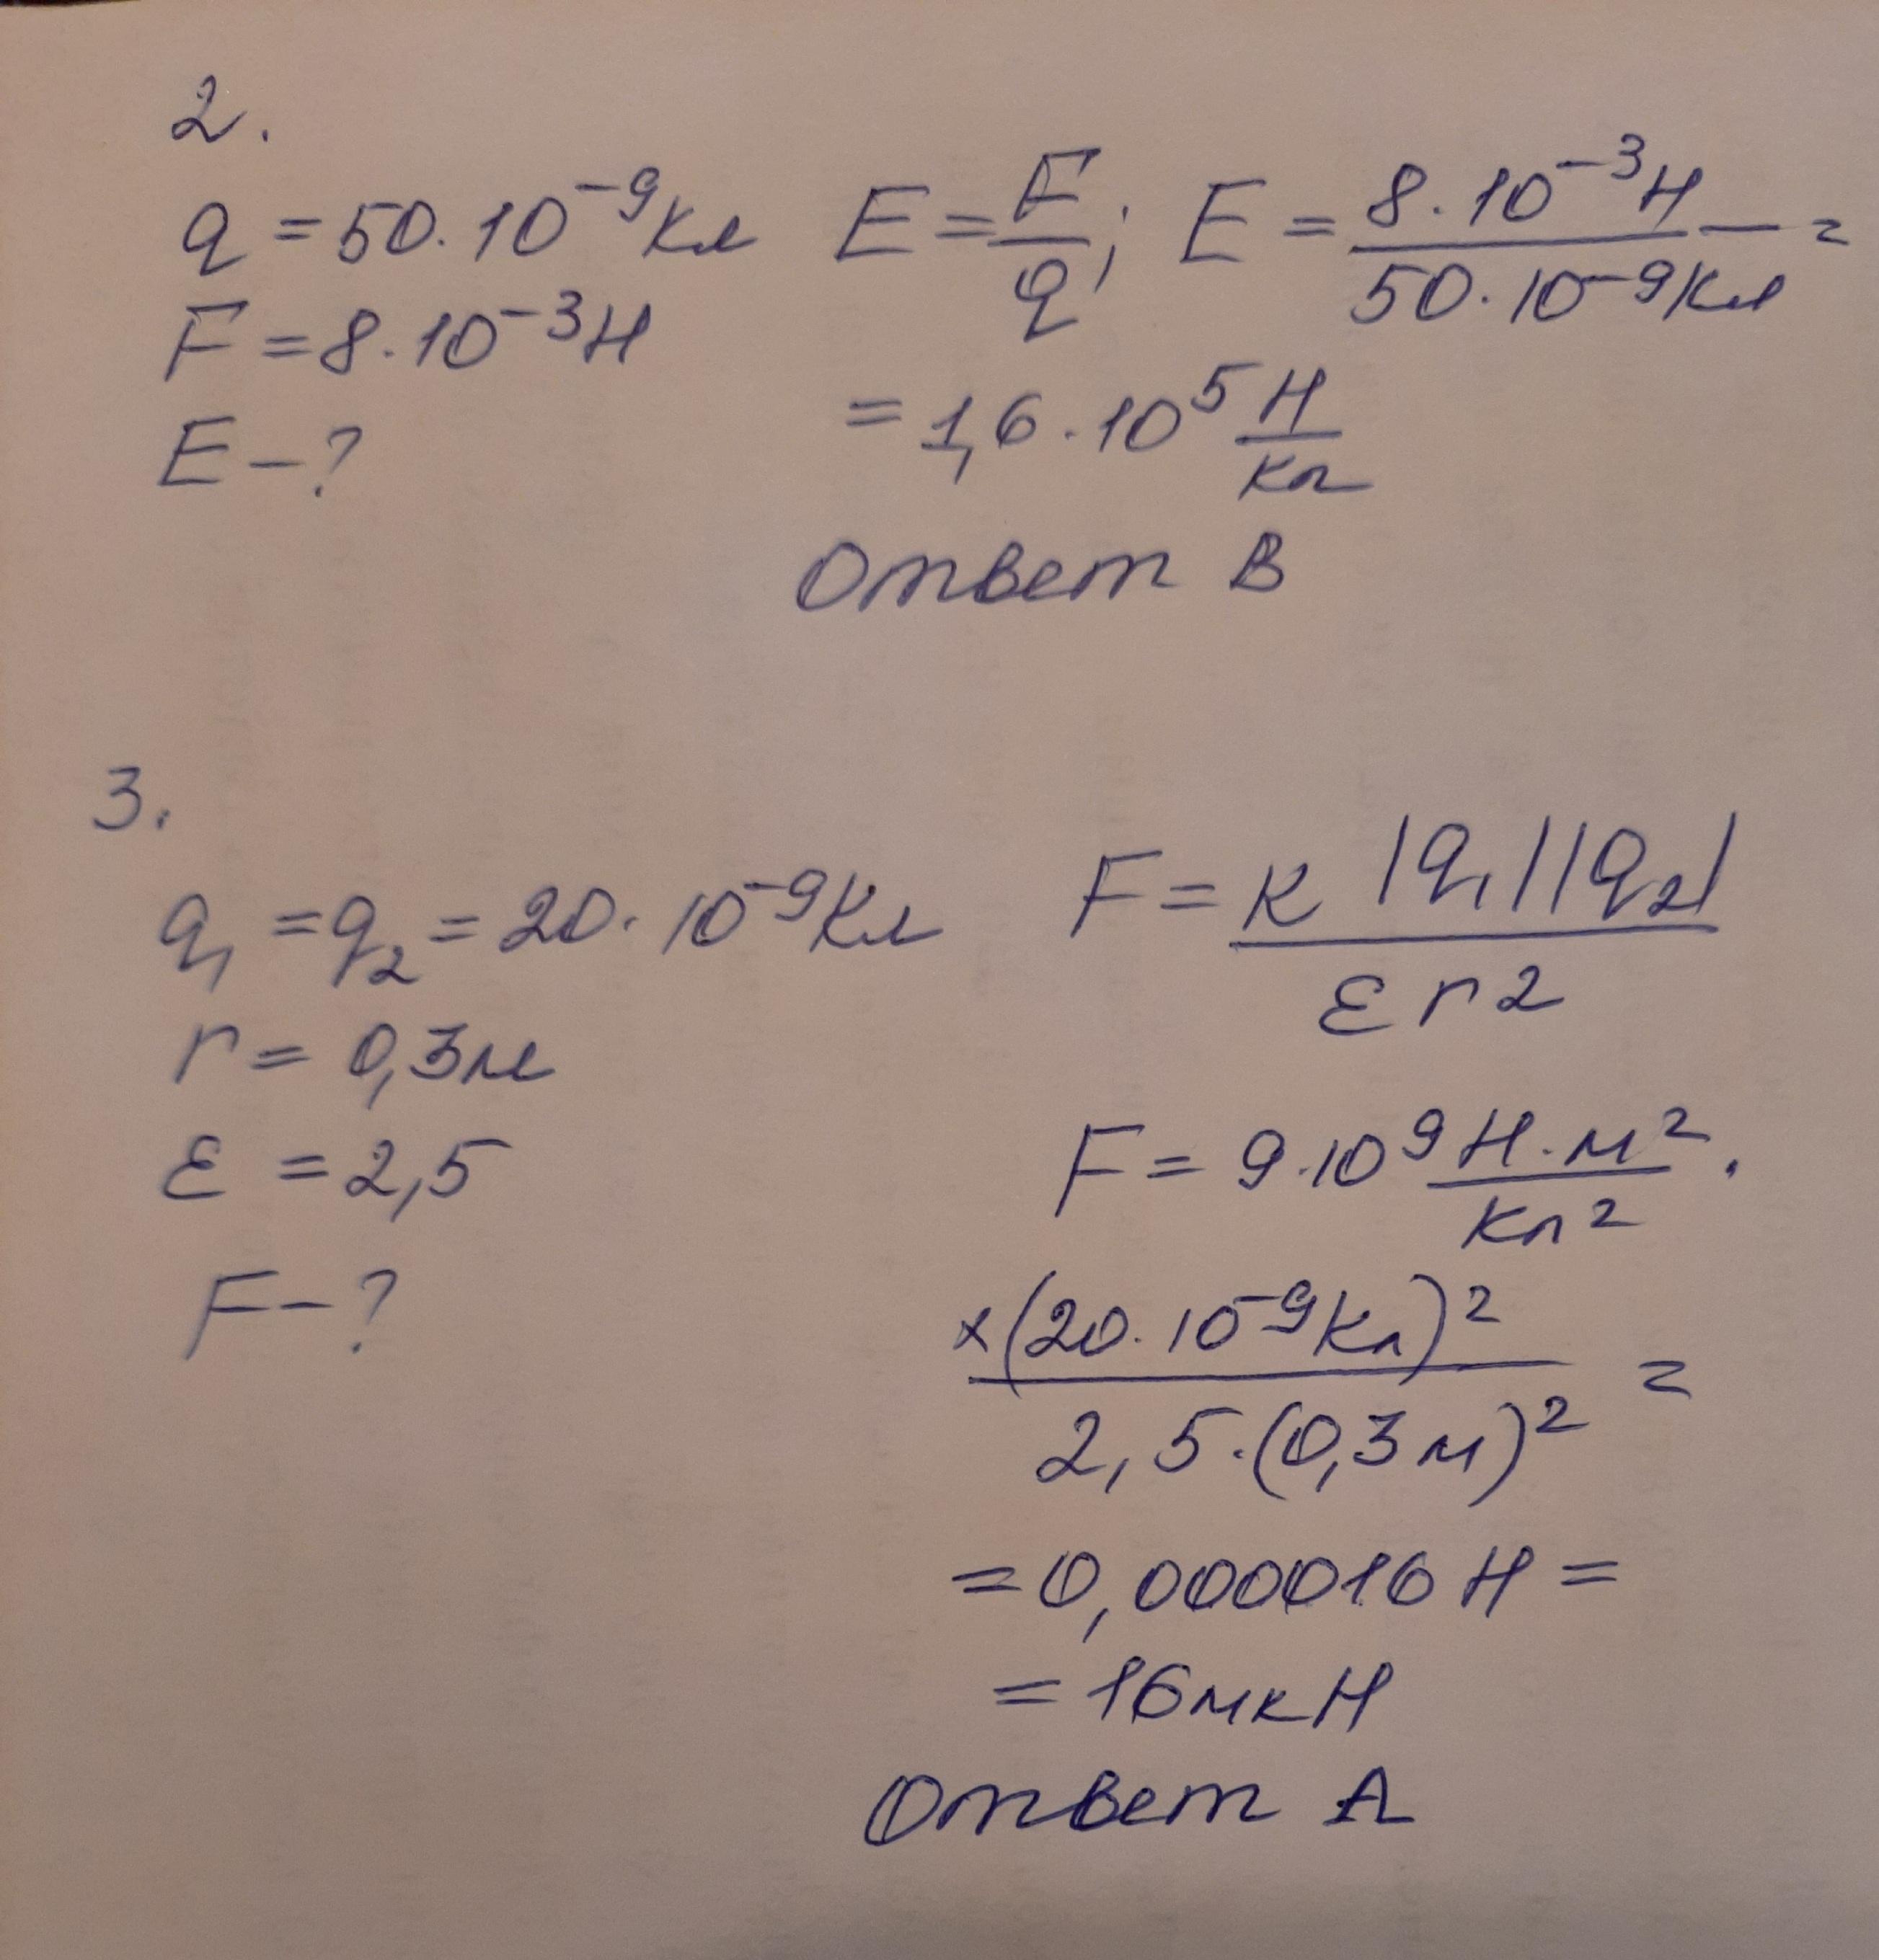 2.
q = 50·10⁻⁹Кл
F = 8·10⁻³Н
E - ?
E = F/q; E = 8·10⁻³Н / 50·10⁻⁹Кл =
= 1,6·10⁵ Н/Кл
Ответ В
3.
q₁ = q₂ = 20·10⁻⁹Кл
r = 0,3м
ε = 2,5
F - ?
F = к |q₁||q₂| / ε r²
F = 9·10⁹ Н·м²/Кл² ·
×(20·10⁻⁹Кл)² / 2,5·(0,3м)² =
= 0,000016 Н =
= 16мкН
Ответ А